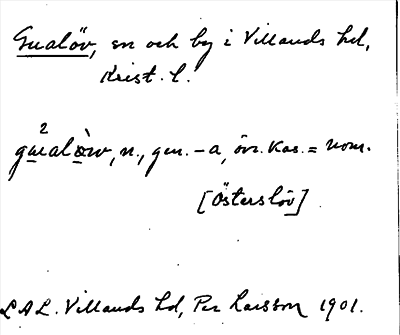 Gualöv, sn och by i Villands hd,
Krist. l.
gualòw, n., gen. -a, övr. kas. = nom.
[Österslöv]
LAL. Villands hd, Per Larsson 1901.